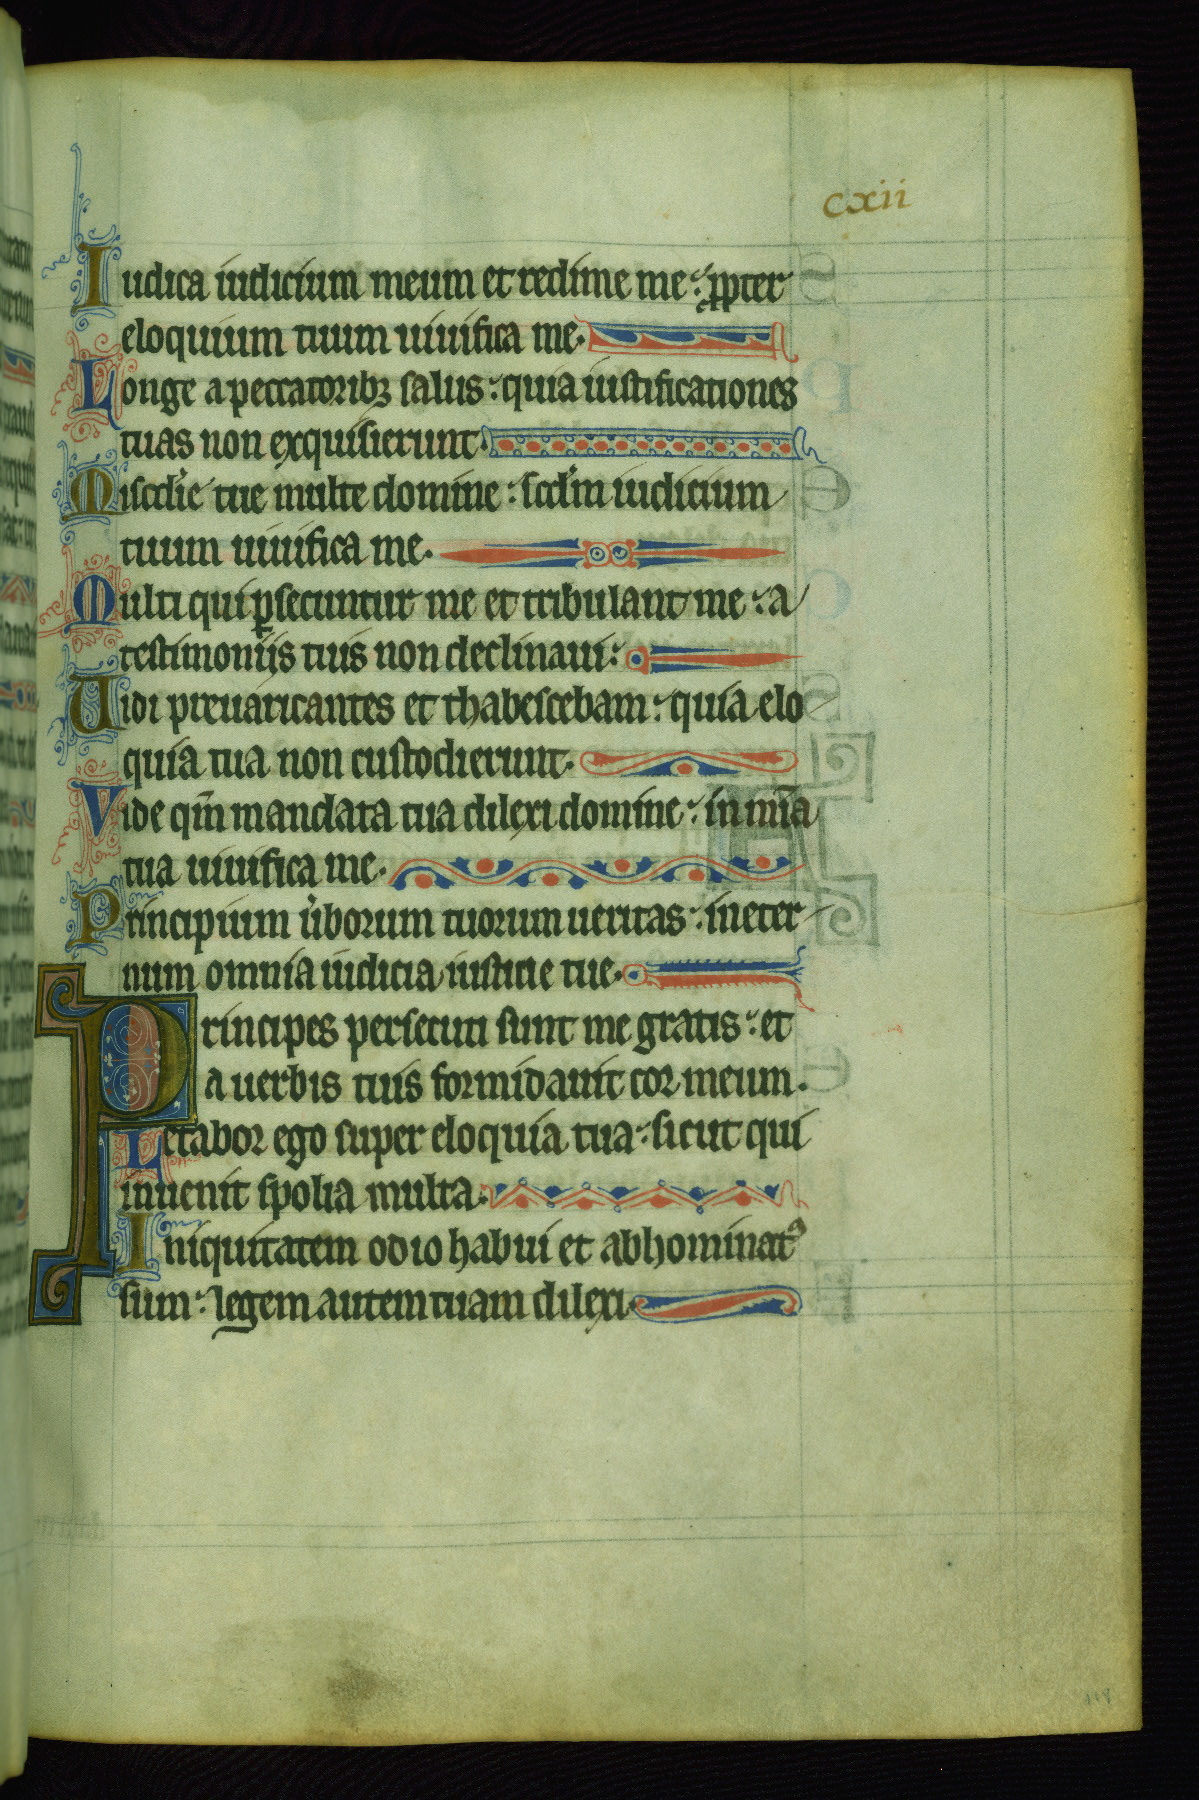 cxii
Iudica iudicium meum et redime me : ꝓpter
eloquium tuum uiuifica me.
Longe a peccatoribꝫ salus : quia iustificationes
tuas non exquisierunt.
Miscd̓ie tue multe domine : scd̓m iudicium
tuum uiuifica me.
Multi qui ꝑsecuntur me et tribulant me : a
testimoniis tuis non declinaui :
Uidi preuaricantes et thabescebam : quia elo
quia tua non custodierunt.
Vide qm̄ mandata tua dilexi domine : in mīa
tua uiuifica me.
Principium u̓borum tuorum ueritas : in eter
num omnia iudicia iusticie tue.
Principes persecuti sunt me gratis : et
a uerbis tuis formidauit cor meum.
Letabor ego super eloquia tua : sicut qui
inuenit spolia multa.
Iniquitatem odio habui et abhominatꝰ
sum : legem autem tuam dilexi.
118